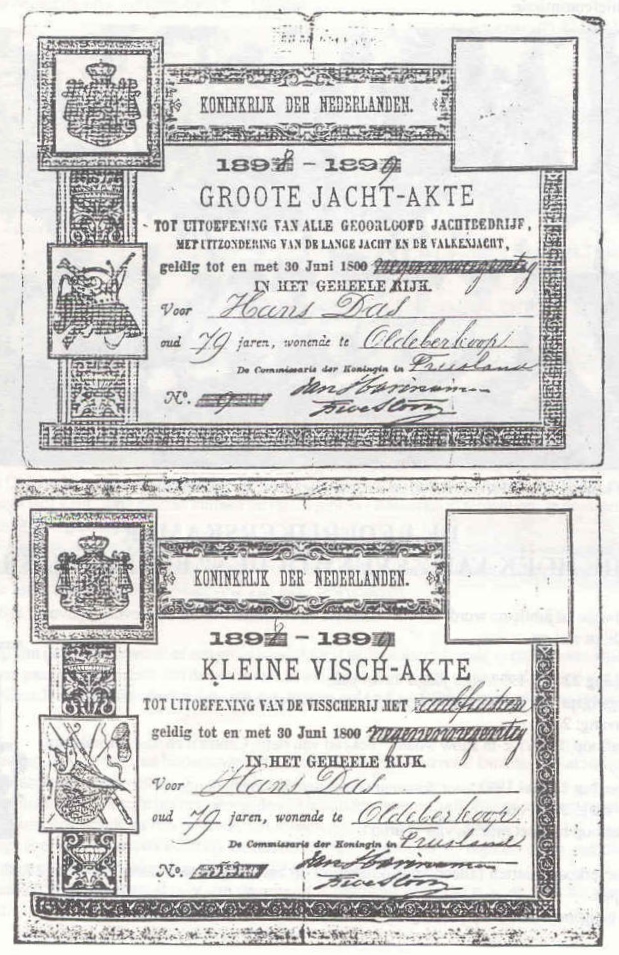 KONINKRIJK DER NEDERLANDEN.
1898 - 1899
GROOTE JACHT-AKTE
TOT UITOEFENING VAN ALLE GEOORLOOFD JACHTBEDRIJF,
MET UITZONDERING VAN DE LANGE JACHT EN DE VALKENJACHT,
geldig tot en met 30 Juni 1800 negenennegentig
IN HET GEHEELE RIJK.
Voor Hans Das
oud 79 jaren, wonende te Oldeberkoop
De Commissaris der Koningin in Friesland
No. 9
KONINKRIJK DER NEDERLANDEN.
1898 - 1899
KLEINE VISCH-AKTE
TOT UITOEFENING VAN DE VISSCHERIJ MET aalfuiken
geldig tot en met 30 Juni 1800 negenennegentig
IN HET GEHEELE RIJK.
Voor Hans Das
oud 79 jaren, wonende te Oldeberkoop
De Commissaris der Koningin in Friesland
No.